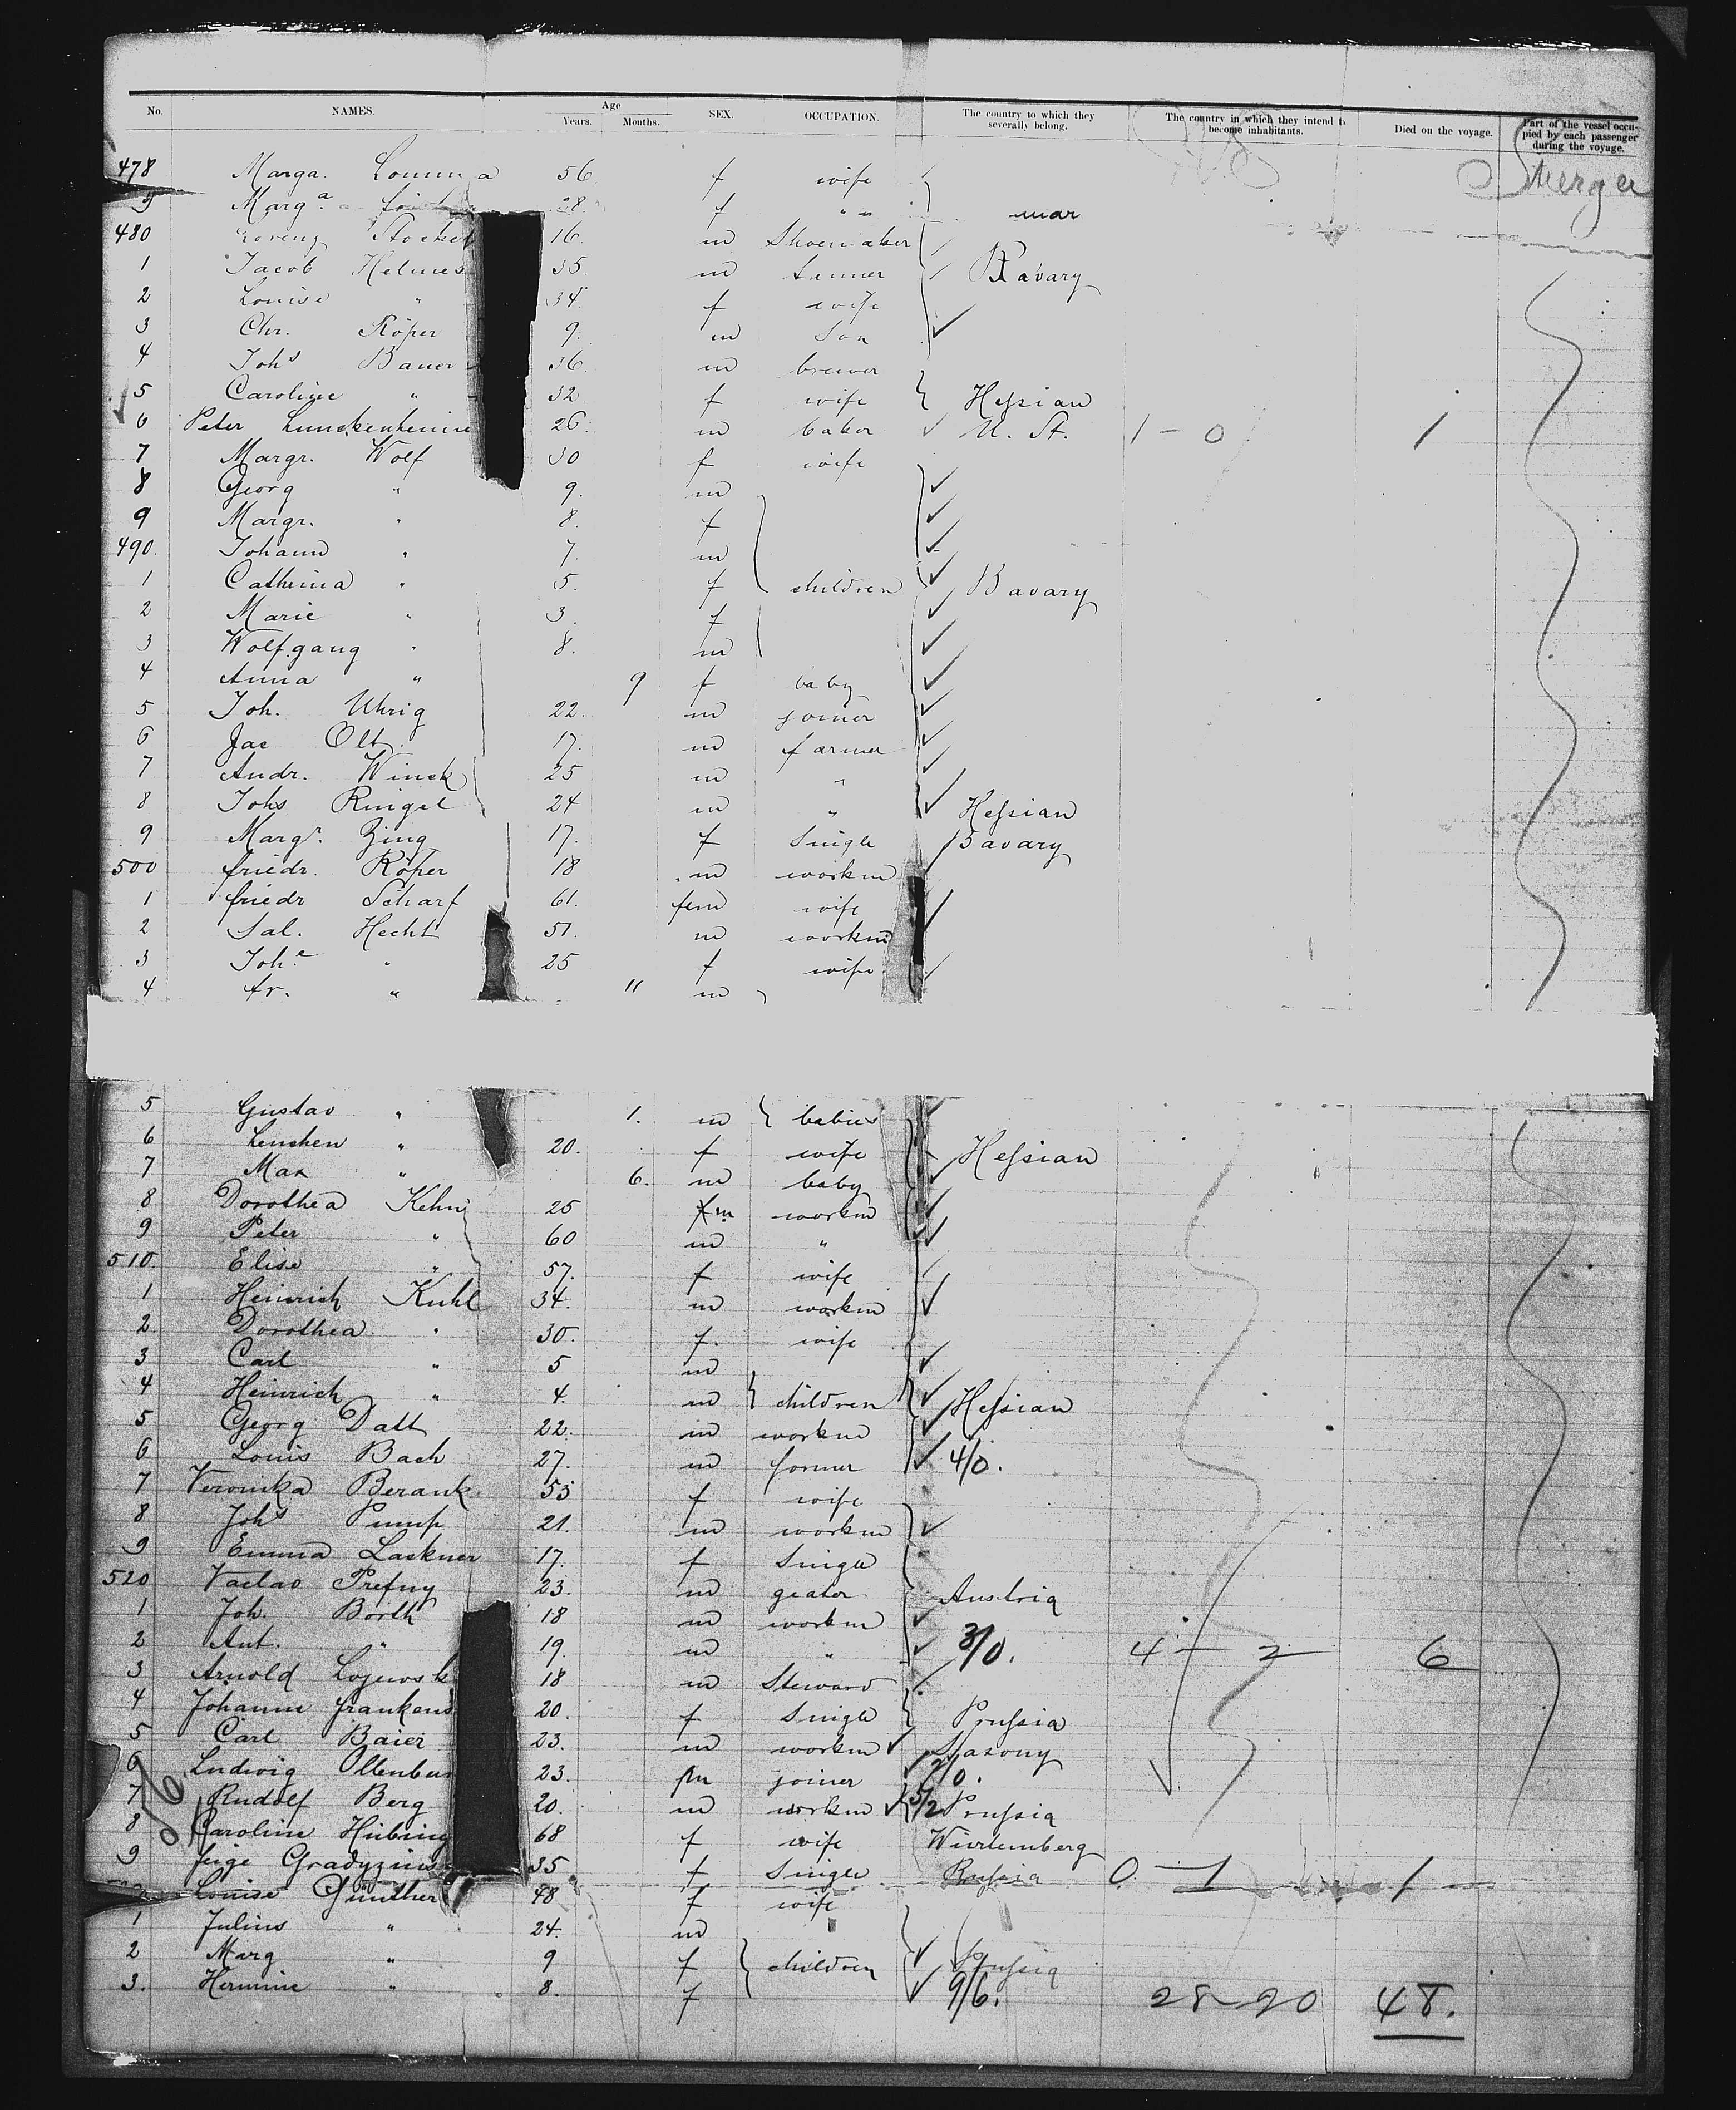 No. NAMES Age Years. Months. SEX. OCCUPATION. The country to which they severally belong. The country in which they intend t become inhabitants. Died on the voyage. Part of the vessel occupied by each passenger during the voyage.
478 Marga. 56 f wife
9 Marg.a 28. f " "
480 Lorenz Stockel 16. m Shoemaker
1 Jacob Helmes 35 m tanner Bavary
2 Louise " 34 f wife
3 Chr. Röper 9. m Son
4 Johs Bauer 36 m brewer
5 Caroline " 32 f wife Hessian
6 Peter 26. m baker U. St. 1 - 0 1
7 Margr. Wolf 30 f wife
8 Georg " 9. m
9 Margr. " 8. f
490. Johann " 7. m
1 Cathrina " 5. f children Bavary
2 Marie " 3. f
3 Wolfgang " 8. m
4 Anna " 9 f baby
5 Joh. Uhrig 22. m joiner
6 Jac Olt. 17. m farmer
7 Andr. Winck 25 m "
8 Johs Ringel 24 m " Hessian
9 Margr. Zing 17. f Single Bavary
500 friedr. Röper 18 m workm
1 friedr Scharf 61. fem wife
2 Sal. Hecht 51. m workm
3 Joh.e " 25 f wife
4 fr. " 11 m
5 Gustav " 1. m babies
6 Lenchen " 20. f wife Hessian
7 Max " 6. m baby
8 Dorothea Kehn 25 fm workm
9 Peter " 60 m "
510. Elise " 57. f wife
1 Heinrich Kuhl 34. m workm
2. Dorothea " 30. f. wife
3 Carl " 5 m
4 Heinrich " 4. m children Hessian
5 Georg Datt 22. m workm
6 Louis Bach 27. m former 4/0.
7 Veronika Berank 55 f wife
8 Johs Pump 21. m workm
9 Emma Lackner 17. f Single
520 Vaclav 23. m Austria
1 Joh. Borth 18 m workm
2 Ant. " 19. m " 3/0. 4 - 2 6
3 Arnold 18 m Steward
4 Johanne 20. f Single Prussia
5 Carl Baier 23. m workm Saxony
6 Ludwig 23. m joiner 2/0.
7 Rudolf Berg 20. m workm 5/2 Prussia
8 Caroline 68 f wife Würtemberg
9 35 f Single Russia 0 - 1 1
Louise Günther 48 f wife
1 Julius " 24. m
2 Marg " 9 f children Prussia
3. Hermine " 8. f 9/6. 28-20 48.